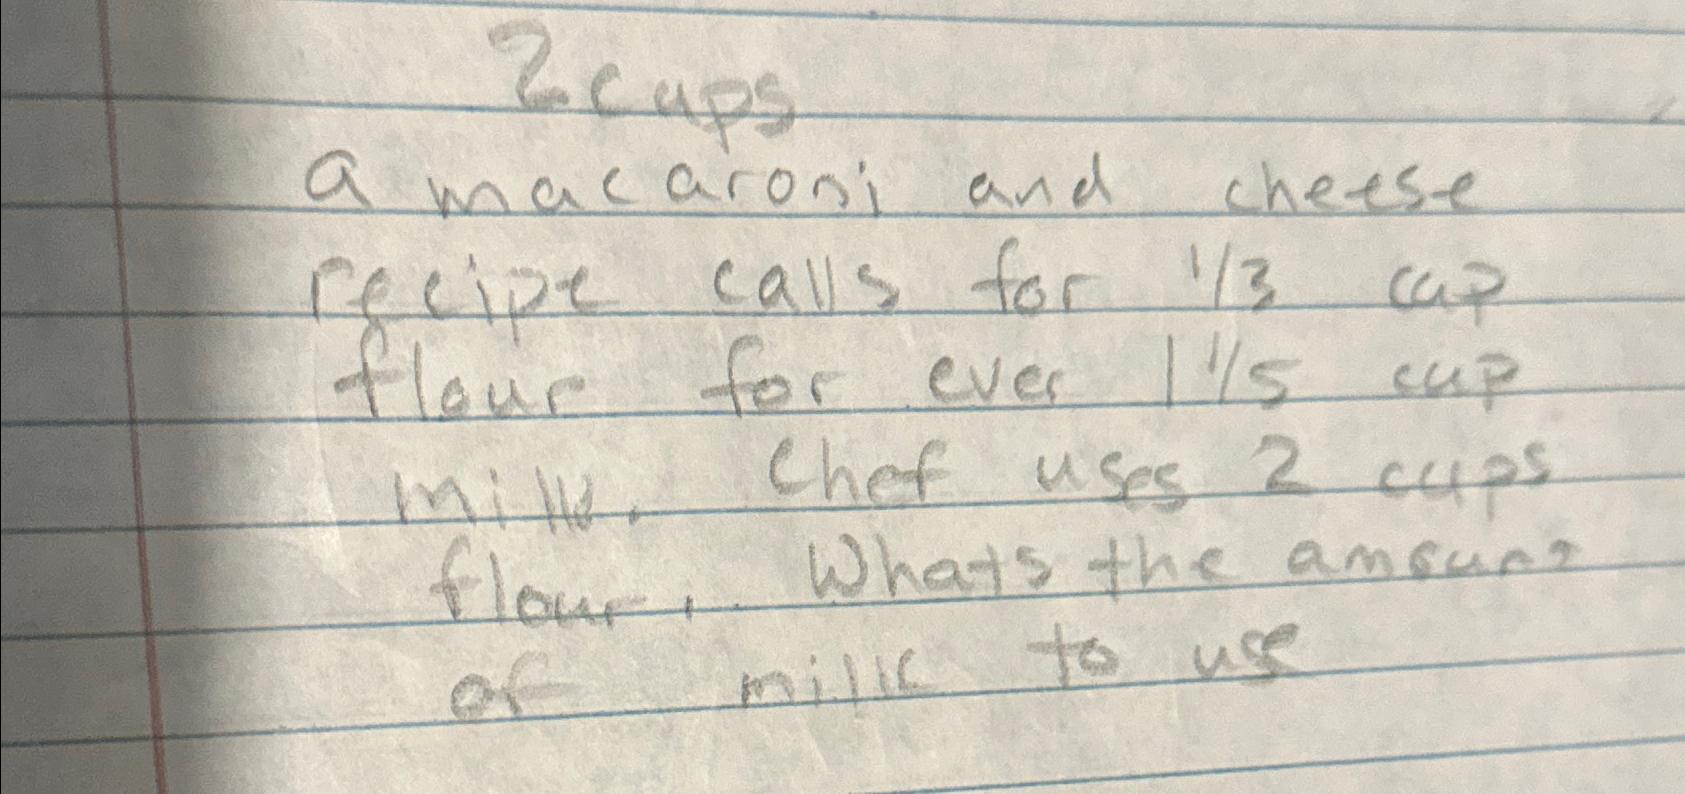 2 cups
a macaroni and cheese
recipe calls for 1/3 cup
flour for ever 1 1/5 cup
milk. Chef uses 2 cups
flour. Whats the amount
of milk to use